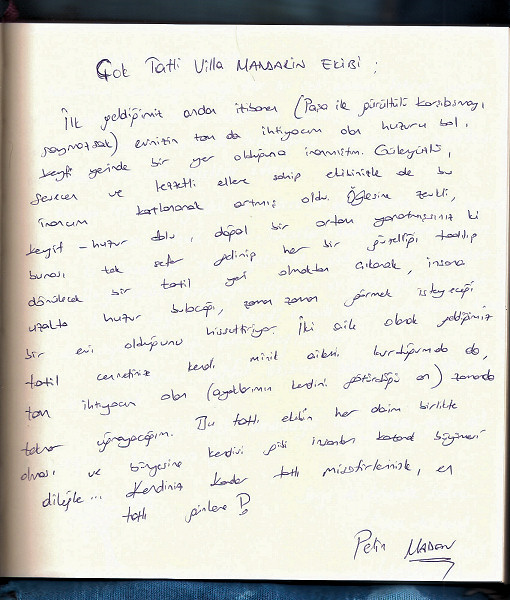 Çok Tatlı Villa MANDARIN EKİBİ ;
İlk geldiğimiz andan itibaren (Paşa ile gürültülü karşılaşmayı
saymazsak) evinizin tam da ihtiyacım olan huzuru bol,
keyfi yerinde bir yer olduğuna inanmıştım. Güleryüzlü,
sevecen ve lezzetli ellere sahip ekibinizle de bu
inancım katlanarak artmış oldu. Öylesine zevkli,
keyif - huzur dolu, doğal bir ortam yaratmışsınız ki
burası tek sefer gelinip her bir güzelliği tadılıp
dönülecek bir tatil yeri olmaktan çıkarak, insana
uzakta huzur bulacağı, zaman zaman görmek isteyeceği
bir evi olduğunu hissettiriyor. İki aile olarak geldiğimiz
tatil cennetinize kendi minik ailemi kurduğumda da,
tam ihtiyacım olan (ayaklarımın kendini götürdüğü an) zamanda
tekrar uğrayacağım. Bu tatlı ekibin her daim birlikte
olması ve bünyesine kendisi gibi insanları katarak büyümesi
dileğiyle... Kendiniz kadar tatlı misafirlerinizle, en
tatlı günlere
Pelin MADAN